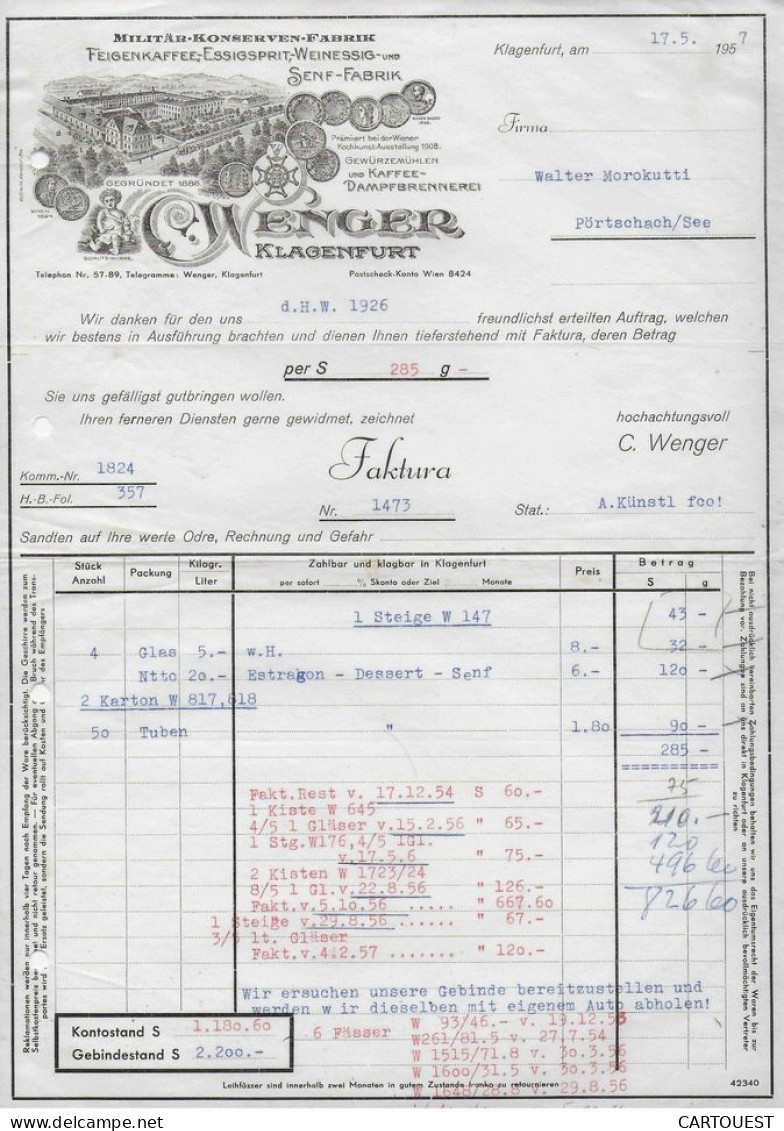 MILITÄR-KONSERVEN-FABRIK
FEIGENKAFFEE-, ESSIGSPRIT-, WEINESSIG- UND
SENF-FABRIK
Klagenfurt, am 17.5. 1957
Prämiiert bei der Wiener
Kochkunst-Ausstellung 1908.
GEWÜRZMÜHLEN
UND KAFFEE-
DAMPFBRENNEREI
GEGRÜNDET 1886.
WIEN
SCHUTZ-MARKE.
C. WENGER
KLAGENFURT
Telephon Nr. 57-89, Telegramme: Wenger, Klagenfurt
Postscheck-Konto Wien 8424
Firma
Walter Morokutti
Pörtschach/See
Wir danken für den uns d.H.W. 1926 freundlichst erteilten Auftrag, welchen
wir bestens in Ausführung brachten und dienen Ihnen tieferstehend mit Faktura, deren Betrag
per S 285 g -
Sie uns gefälligst gutbringen wollen.
Ihren ferneren Diensten gerne gewidmet, zeichnet
hochachtungsvoll
C. Wenger
Komm.-Nr. 1824
H.-B.-Fol. 357
Faktura
Nr. 1473
Stat.: A.Künstl fco!
Sandten auf Ihre werte Odre, Rechnung und Gefahr
Stück Anzahl
Packung
Kilogr. Liter
Zahlbar und klagbar in Klagenfurt
per sofort % Skonto oder Ziel Monate
Preis
Betrag
S g
1 Steige W 147 43 -
4 Glas 5.- w.H. 8.- 32 -
Ntto 20.- Estragon - Dessert - Senf 6.- 120 -
2 Karton W 817,818
50 Tuben " 1.80 90 -
285 -
==========
Fakt.Rest v. 17.12.54 S 60.- 75
1 Kiste W 645 210.-
4/5 l Gläser v.15.2.56 " 65.-
1 Stg.W176,4/5 lGl. 120
v.17.5.6 " 75.- 496 60
2 Kisten W 1723/24
8/5 l Gl.v.22.8.56 " 126.- 826 60
Fakt.v.5.10.56 ..... " 667.60
1 Steige v.29.8.56 ..... " 67.-
3/5 lt. Gläser
Fakt.v.4.2.57 ....... " 120.-
Wir ersuchen unsere Gebinde bereitzustellen und
werden w ir dieselben mit eigenem Auto abholen!
Kontostand S 1.180.60
Gebindestand S 2.200.-
6 Fässer W 93/46.- v. 19.12.53
W261/81.5 v. 27.7.54
W 1515/71.8 v. 30.3.56
W 1600/31.5 v. 30.3.56
W 1648/28.8 v. 29.8.56
Leihfässer sind innerhalb zwei Monaten in gutem Zustande franko zu retournieren
42340
Reklamationen werden nur innerhalb vier Tagen nach Empfang der Ware berücksichtigt. Die Geschirre werden zum
Selbstkostenpreis be
et und nicht retour genommen. — Für eventuellen Abgang
Bruch während des Trans-
portes wird
Ersatz geleistet, sondern die Sendung rollt auf Kosten und
hr des Empfängers
Bei nicht ausdrücklich vereinbarten Zahlungsbedingungen behalten wir uns das Eigentumsrecht der Waren bis zur
Bezahlung vor. Zahlungen sind an uns direkt in Klagenfurt oder an unsere ausdrücklich bevollmächtigten Vertreter
zu richten
CARTOUEST